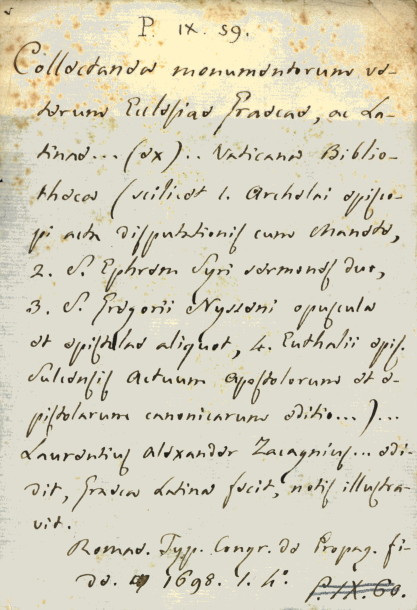 P. IX. 59.
Collectanea monumentorum ve-
terum Ecclesiae Graecae, ac La-
tinae... (ex).. Vaticana Biblio-
theca (scilicet 1. Archelai episco-
pi acta disputationis cum Manete,
2. S. Ephrem Syri sermones duo,
3. S. Gregorii Nysseni opuscula
et epistolae aliquot, 4. Euthalii epis.
Sulcensis Actuum Apostolorum et e-
pistolarum canonicarum editio...)...
Laurentius Alexander Zacagnius... edi-
dit, Graeca Latina fecit, notis illustra-
vit.
Romae. Typ. Congr. de Propag. fi-
de. 1698. 1. 4º.
P. IX. 60.